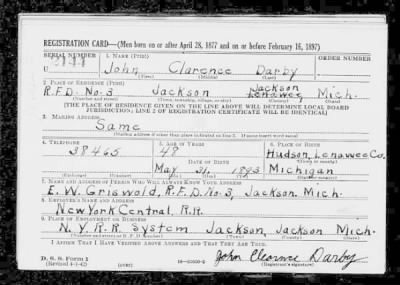 REGISTRATION CARD—(Men born on or after April 28, 1877 and on or before February 16, 1897)
SERIAL NUMBER 1. NAME (Print) ORDER NUMBER
U John Clarence Darby
(First) (Middle) (Last)
2. PLACE OF RESIDENCE (Print)
Jackson
R.F.D. No. 3 Jackson Lenawee Mich.
(Number and street) (Town, township, village, or city) (County) (State)
[THE PLACE OF RESIDENCE GIVEN ON THE LINE ABOVE WILL DETERMINE LOCAL BOARD
JURISDICTION; LINE 2 OF REGISTRATION CERTIFICATE WILL BE IDENTICAL]
3. MAILING ADDRESS
Same
[Mailing address if other than place indicated on line 2. If same insert word same]
4. TELEPHONE 5. AGE IN YEARS 6. PLACE OF BIRTH
38465 48 Hudson, Lenawee Co.
DATE OF BIRTH
May 31, 1893 Michigan
(Exchange) (Number) (Mo.) (Day) (Yr.) (State or country)
7. NAME AND ADDRESS OF PERSON WHO WILL ALWAYS KNOW YOUR ADDRESS
E. W. Griswold, R.F.D. No. 3, Jackson, Mich.
8. EMPLOYER'S NAME AND ADDRESS
New York Central. R.R.
9. PLACE OF EMPLOYMENT OR BUSINESS
N. Y. R. R. System Jackson, Jackson Mich.
(Number and street or R. F. D. number) (Town) (County) (State)
I AFFIRM THAT I HAVE VERIFIED ABOVE ANSWERS AND THAT THEY ARE TRUE.
D. S. S. Form 1
(Revised 4-1-42) (over) John Clarence Darby
(Registrant's signature)